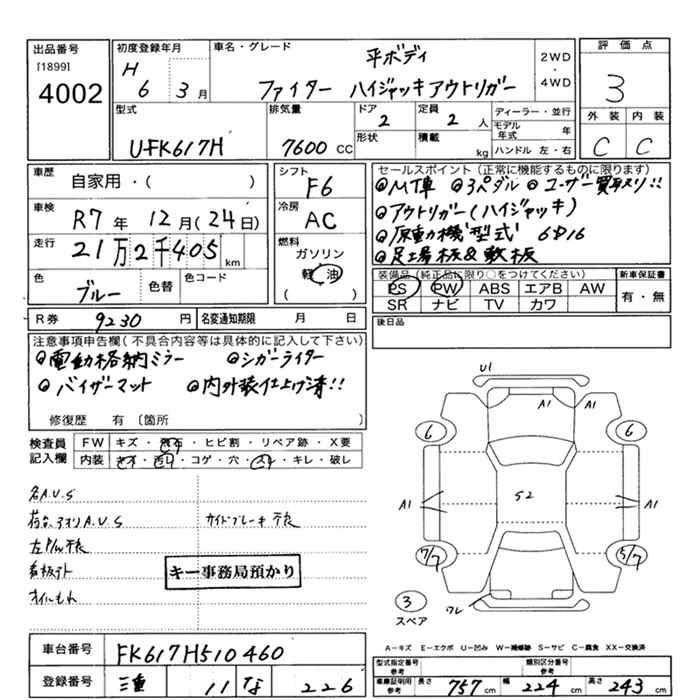 出品番号
[1899]
4002
初度登録年月
H 6 3月
車名・グレード
平ボディ
ファイター ハイジャッキアウトリガー
2WD
・
4WD
評価点
3
外装 内装
C C
型式
U-FK617H
排気量
7600 CC
ドア
2
形状
定員
2 人
積載
kg
ディーラー・並行
モデル年式 年
ハンドル 左・右
車歴
自家用・( )
車検
R7年 12月(24日)
走行
21万2千405 km
色
ブルー
色替
色コード
シフト
F6
冷房
AC
燃料
ガソリン
軽油
セールスポイント(正常に機能するものに限ります)
◎MT車 ◎3ペダル ◎ユーザー買取り!!
◎アウトリガー(ハイジャッキ)
◎原動機型式 6D16
◎足場板&敷板
装備品(純正品に限り○をつけてください)
PS PW ABS エアB AW
SR ナビ TV カワ
新車保証書
有・無
R券 9230 円
名変通知期限 月 日
後日品
注意事項申告欄(不具合内容等は具体的に記入して下さい)
◎電動格納ミラー ◎シガーライター
◎バイザーマット ◎内外装仕上げ済!!
修復歴 有〔箇所
検査員
記入欄
FW キズ・飛石・ヒビ割・リペア跡・X要
内装 キズ・汚れ・コゲ・穴・スレ・キレ・破レ
名A.U.S
荷台、アオリA.U.S
サイドブレーキ不良
看板跡
オイルもれ
キー事務局預かり
U1
A1 A1
6 6
A1 A1
52
7/7 5/7
3
スペア
ワレ
A-キズ E-エクボ U-凹み W-補修跡 S-サビ C-腐食 XX-交換済
車台番号
FK617H510460
登録番号
三重 11 な 226
型式指定番号
参考
類別区分番号
参考
車庫証明用
参考
長さ 757 cm 幅 224 cm 高さ 243 cm